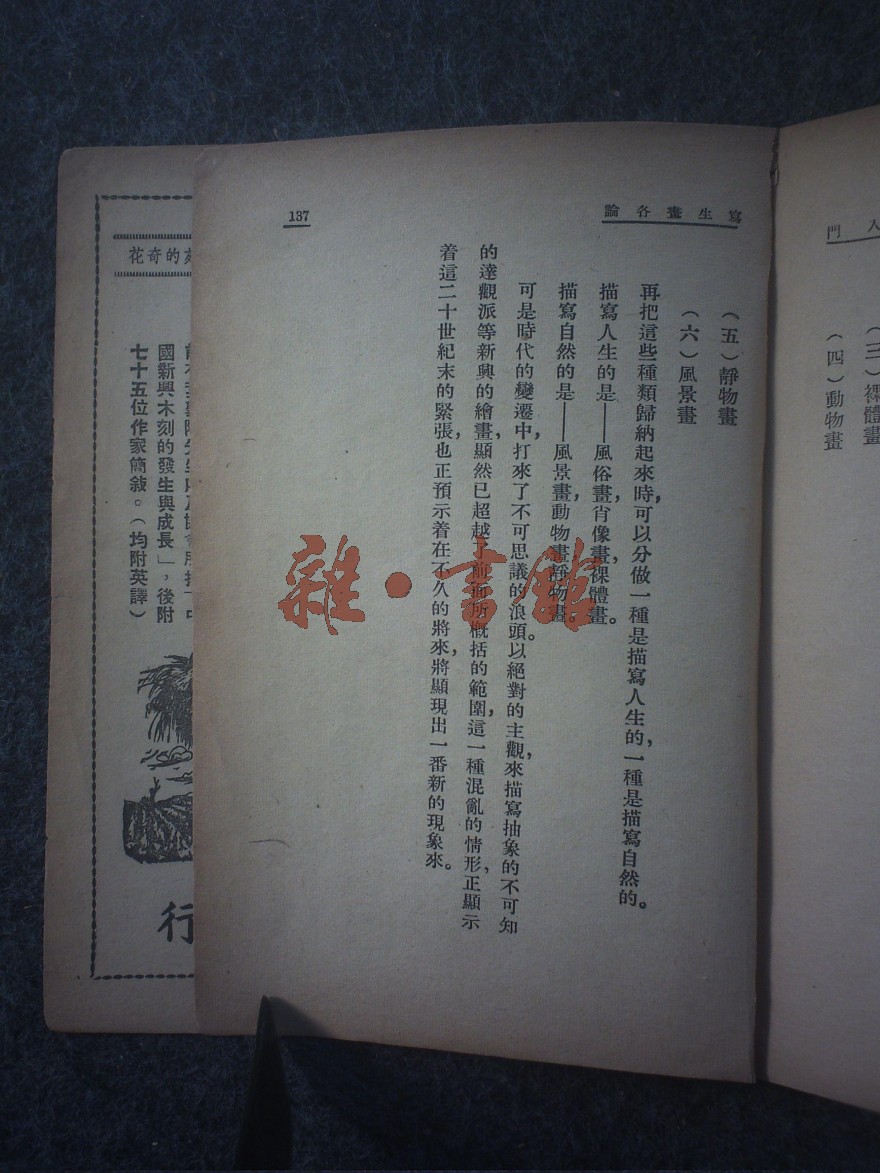 門人
(三)裸體畫
(四)動物畫
寫生畫各論
137
(五)靜物畫
(六)風景畫
再把這些種類歸納起來時,可以分做一種是描寫人生的,一種是描寫自然的。
描寫人生的是——風俗畫,肖像畫,裸體畫。
描寫自然的是——風景畫,動物畫,靜物畫。
可是時代的變遷中,打來了不可思議的浪頭。以絕對的主觀,來描寫抽象的不可知
的達觀派等新興的繪畫,顯然已超越了前面所概括的範圍,這一種混亂的情形,正顯示
着這二十世紀末的緊張,也正預示着在不久的將來,將顯現出一番新的現象來。
雜·書館
花奇的刻
國新興木刻的發生與成長」,後附
七十五位作家簡敍。(均附英譯)
行